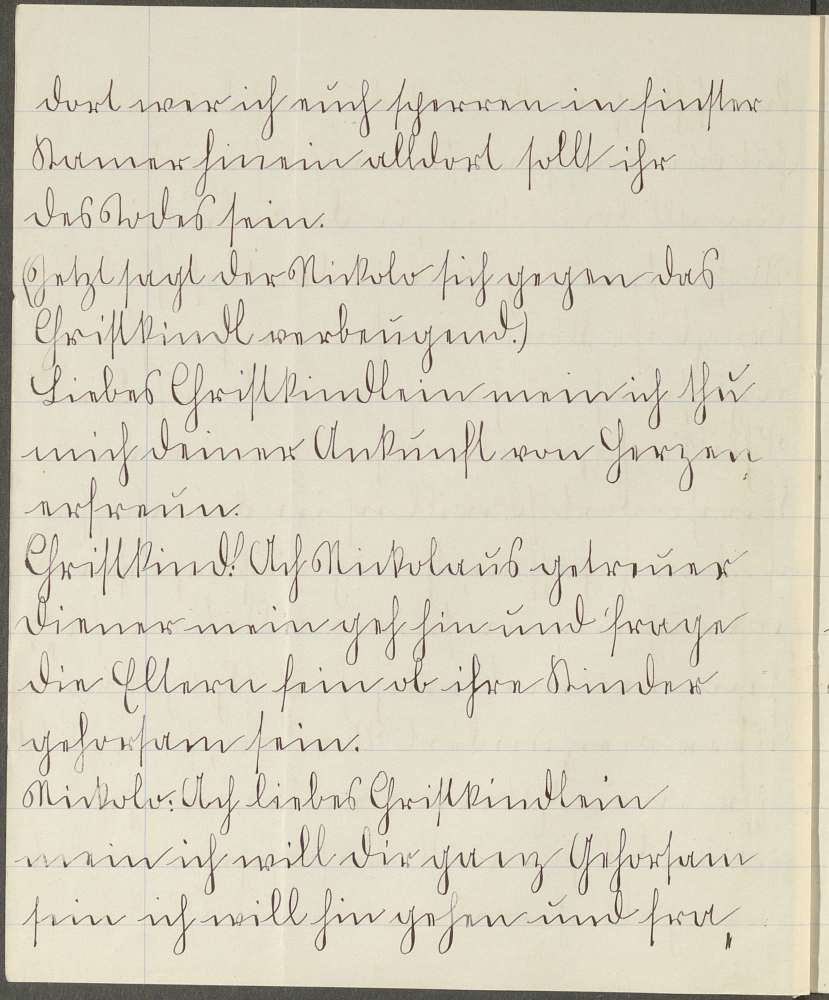 dort wer ich euch sperren in finster
Kamer hinein alldort sollt ihr
des Todes sein.
(Jetzt sagt der Nickolo sich gegen das
Christkindl verbeugend.)
Liebes Christkindlein mein ich thu
mich deiner Ankunft von Herzen
erfreun.
Christkind! Ach Nickolaus getreuer
Diener mein geh hin und frage
die Eltern fein ob ihre Kinder
gehorsam sein.
Nickolo: Ach liebes Christkindlein
mein ich will dir ganz Gehorsam
sein ich will hin gehen und fra„